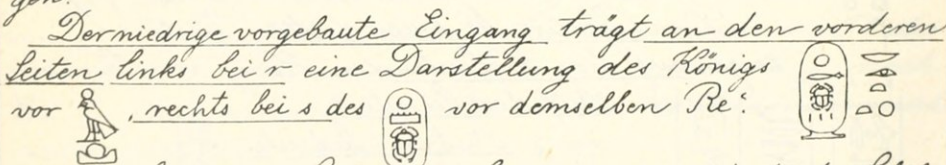 Der niedrige vorgebaute Eingang trägt an den vorderen
Seiten links bei r eine Darstellung des Königs
vor , rechts bei s des vor demselben Re: